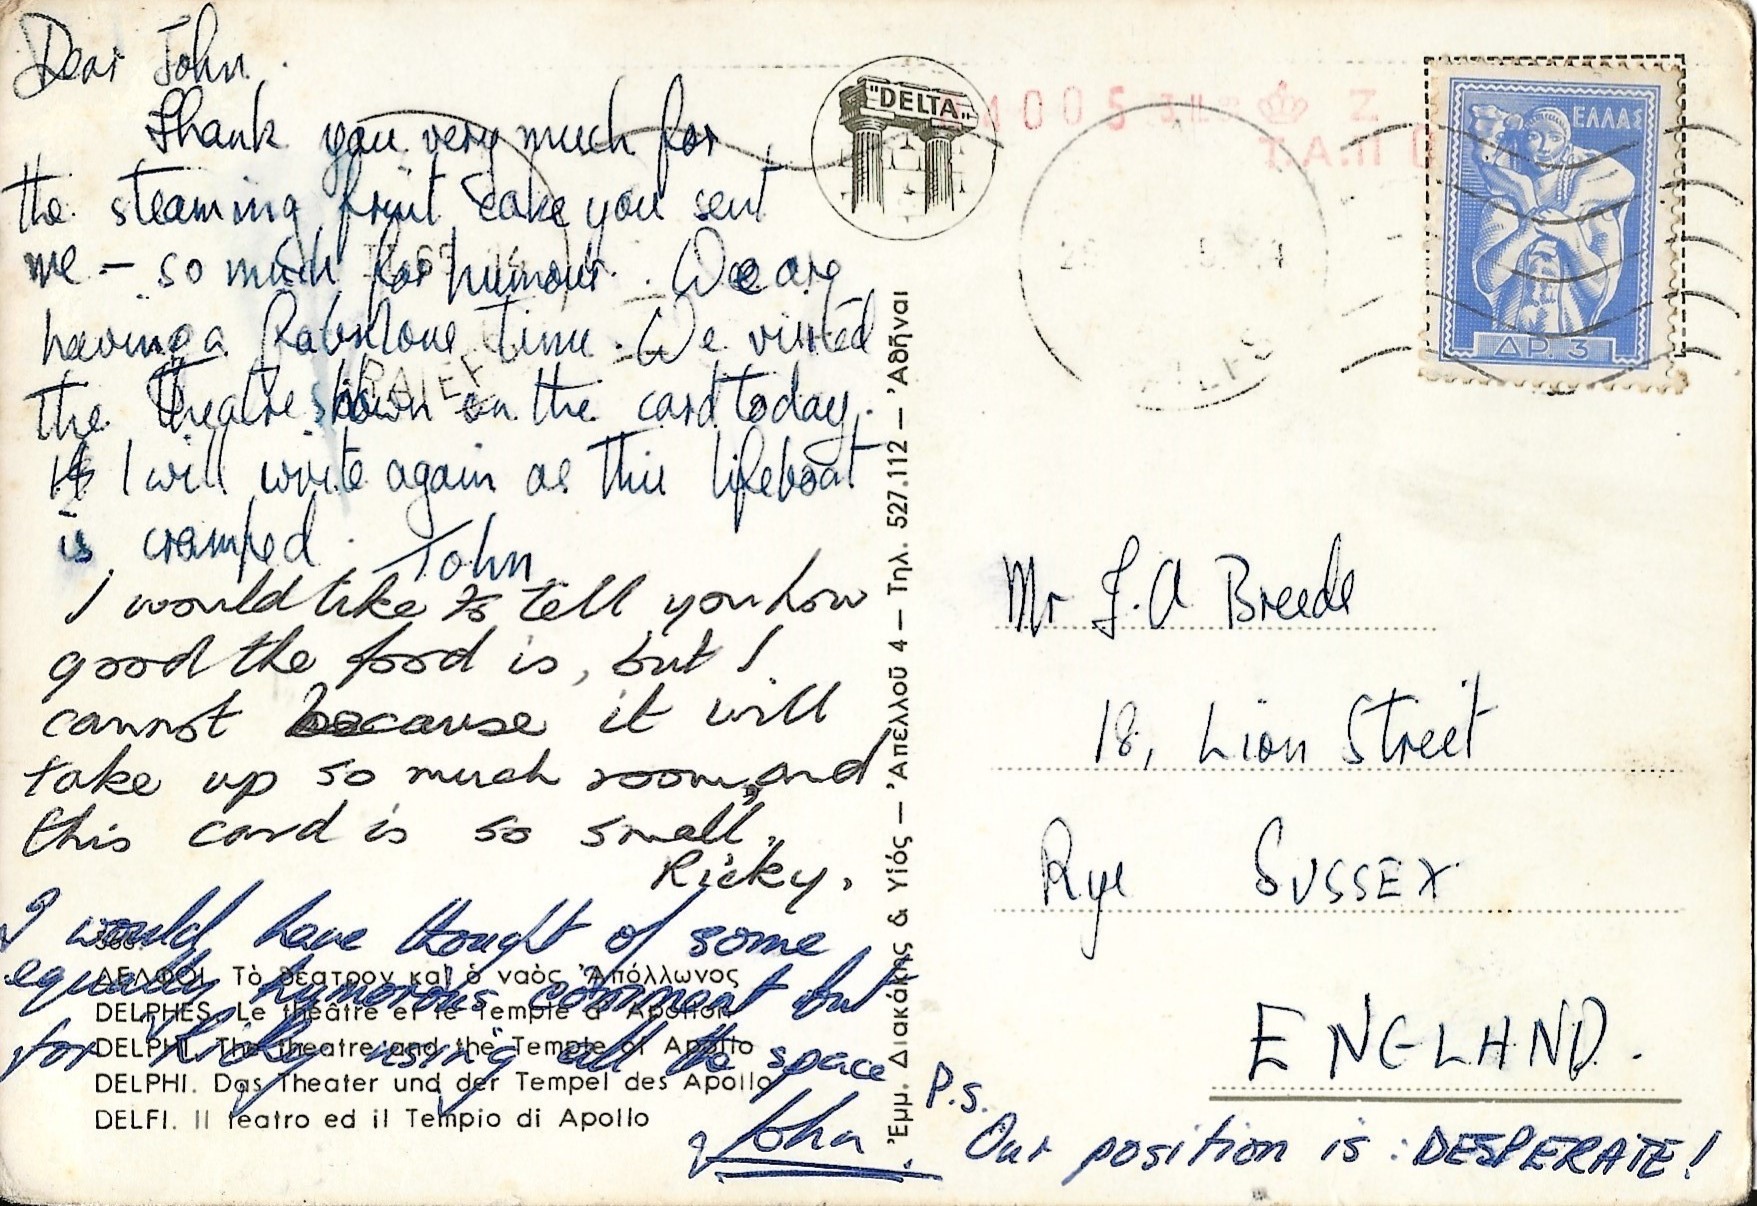 Dear John.
Thank you very much for
the steaming fruit cake you sent
me - so much for humour. We are
having a fabulous time. We visited
the Theatre shown on the card today.
I will write again as this lifeboat
is cramped. John
I would like to tell you how
good the food is, but I
cannot because it will
take up so much room, and
this card is so small.
Ricky.
I would have thought of some
equally humorous comment but
for Ricky using all the space
John.
ΔΕΛΦΟΙ. Τὸ θέατρον καὶ ὁ ναὸς Ἀπόλλωνος
DELPHES. Le théâtre et le Temple d' Apollon
DELPHI. The theatre and the Temple of Apollo
DELPHI. Das Theater und der Tempel des Apollo
DELFI. Il teatro ed il Tempio di Apollo
Ἐμμ. Διακάκης & Υἱός — Ἀπελλοῦ 4 — Τηλ. 527.112 — Ἀθῆναι
"DELTA"
ΕΛΛΑΣ
ΔΡ. 3
Mr J. A Breeds
18, Lion Street
Rye SUSSEX
ENGLAND.
P.S.
Our position is: DESPERATE!